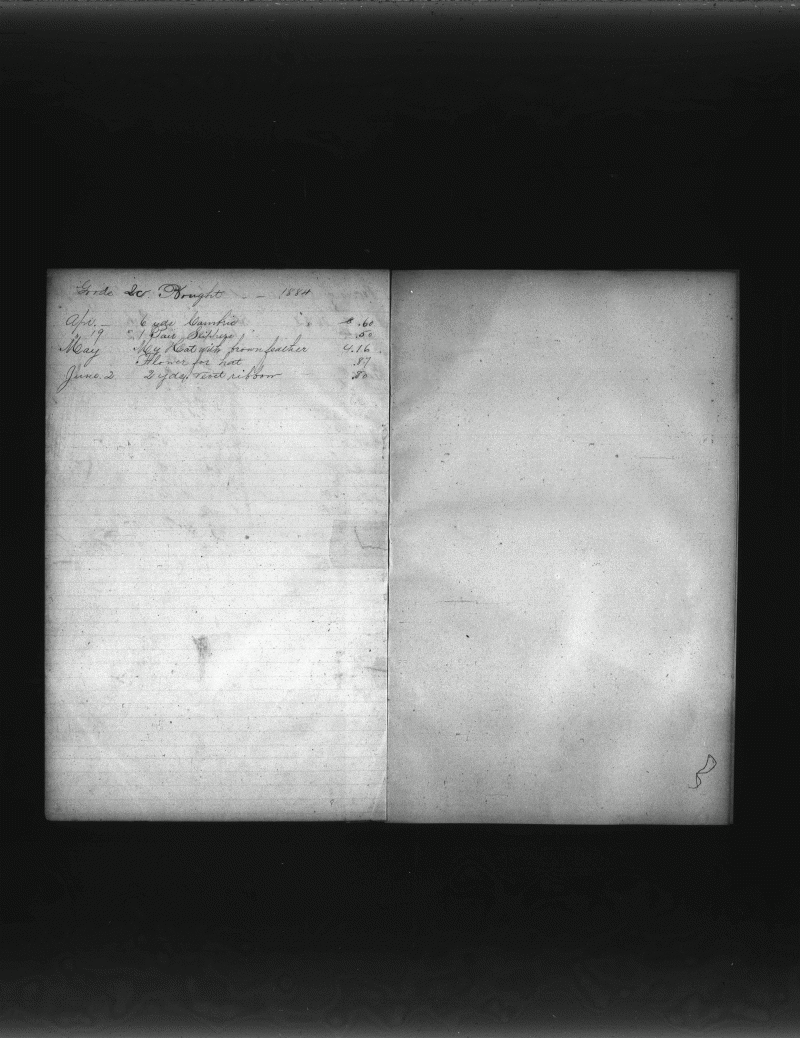 Goods &c Bought - - 1884
Apr. - 6 yds Cambric " .60
" 19 " 1 Pair Slippers " .50
May My Hat with brown feather 4.16
Flower for hat .87
June. 2 2 yds. ribbon .80